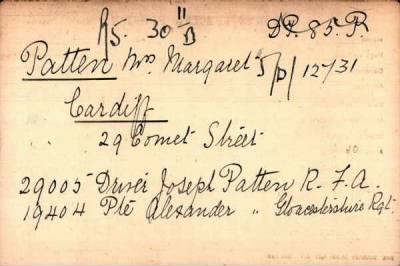 R5. 30 11/B DP. 85. P.
Patten Mrs Margaret J/P/1231
Cardiff
29 Comet Street
29005 Driver Joseph Patten R. F. A.
19404 Pte Alexander " Gloucestershire Rgt.